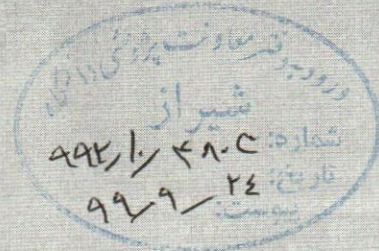 ورود به دفتر معاونت پژوهشی دانشگاه
شیراز
شماره:
تاریخ: ۹۹/۹/۲۴
پیوست: